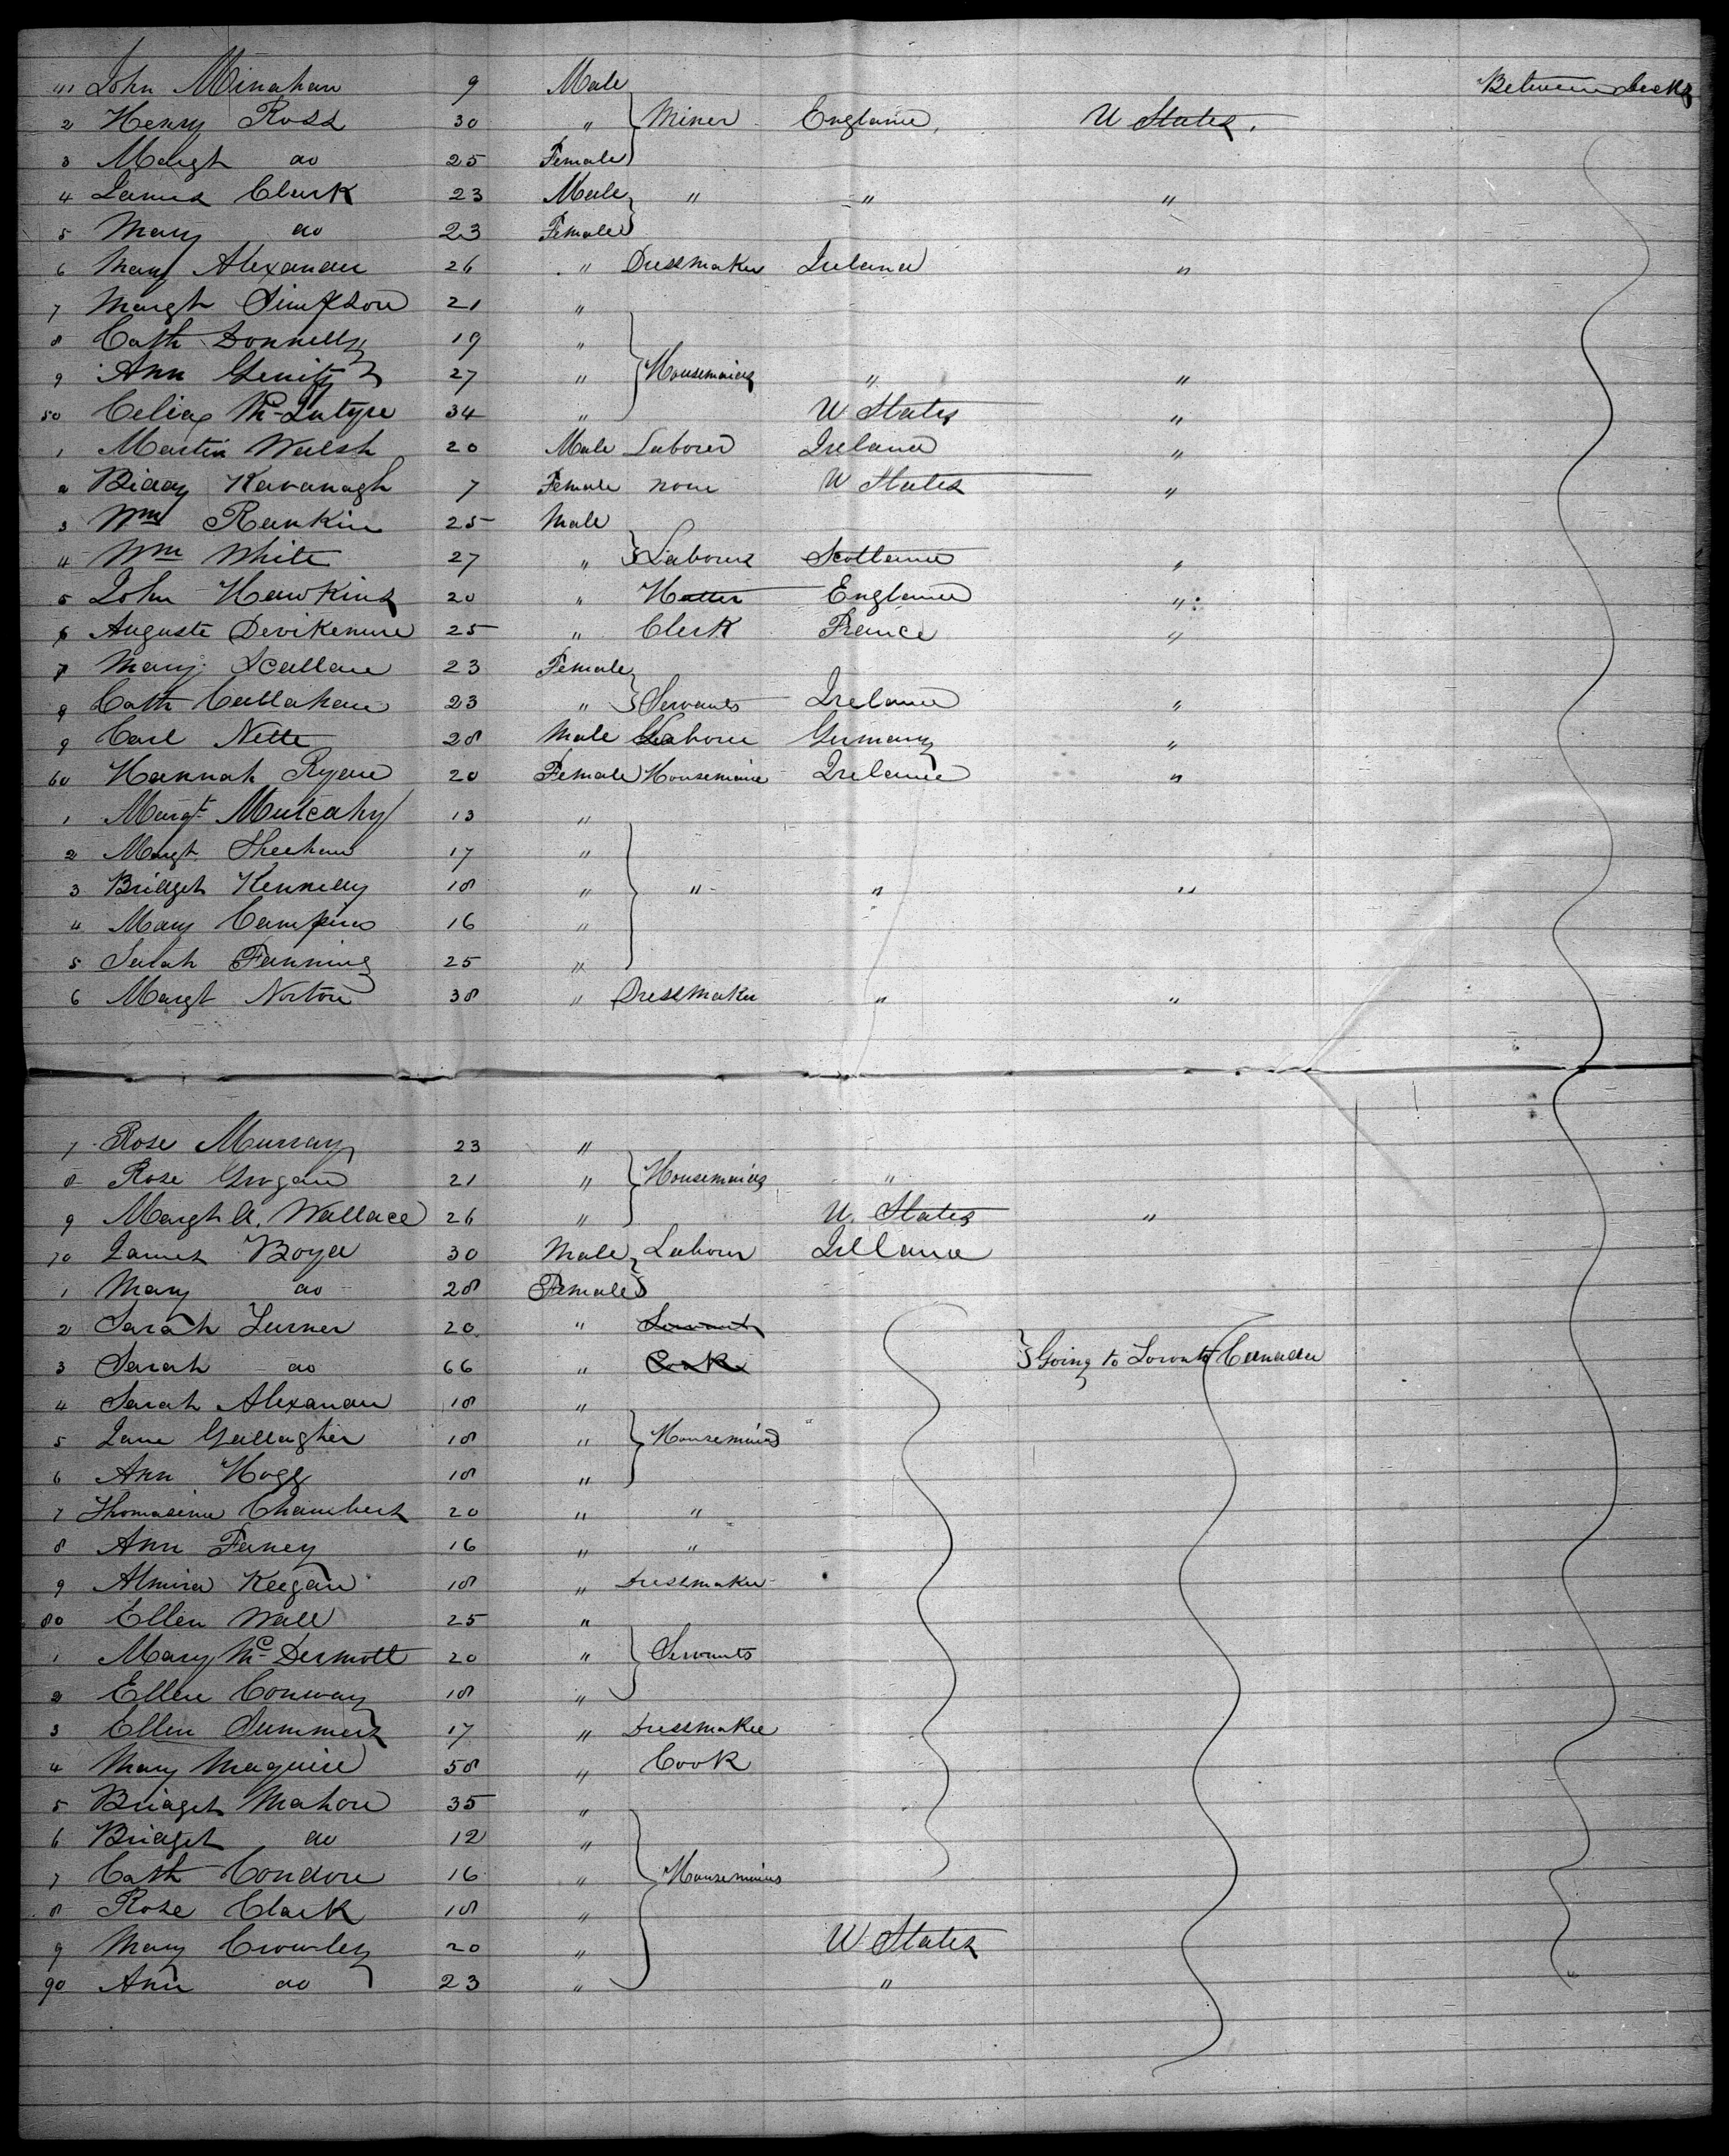 41 John Minahan 9 Male Between Decks
2 Henry Ross 30 " Miner England U States.
3 Margt do 25 Female
4 James Clark 23 Male " " "
5 Mary do 23 Female
6 Mary Alexander 26 " Dressmaker Ireland "
7 Margt Simpson 21 "
8 Cath Donnelly 19 "
9 Ann 27 " Housemaids " "
50 Celia McIntyre 34 " U States "
1 Martin Walsh 20 Male Laborer Ireland "
2 Biddy Kavanagh 7 Female none U States "
3 Wm Rankin 25 Male
4 Wm White 27 " Laborers Scotland "
5 John Hawkins 20 " Hatter England "
6 Auguste 25 " Clerk France "
7 Mary Scallan 23 Female
8 Cath Callahan 23 " Servants Ireland "
9 Carl Nette 28 Male Laborer Germany "
60 Hannah Ryan 20 Female Housemaid Ireland "
1 Margt Mulcahy 13 "
2 Margt Sheehan 17 "
3 Bridget Kennedy 18 " " " "
4 Mary 16 "
5 Sarah Fanning 25 "
6 Margt Norton 38 " Dressmaker " "
7 Rose Murray 23 "
8 Rose Grogan 21 " Housemaids "
9 Margt A. Wallace 26 " U. States "
70 James Boyd 30 Male Laborer Ireland
1 Mary do 28 Female
2 Sarah Turner 20 " Servant
3 Sarah do 66 " Cook Going to Toronto Canada
4 Sarah Alexander 18 "
5 Jane Gallagher 18 " Housemaids "
6 Ann Hogg 18 "
7 Thomasina Chambers 20 " "
8 Ann Faney 16 " "
9 Almira Keegan 18 " Dressmaker
80 Ellen Wall 25 "
1 Mary McDermott 20 " Servants
2 Ellen Conway 18 "
3 Ellen Summers 17 " Dressmaker
4 Mary Maguire 58 " Cook
5 Bridget Mahon 35 "
6 Bridget do 12 "
7 Cath Condon 16 " Housemaids
8 Rose Clark 18 "
9 Mary Crowley 20 " U States
90 Ann do 23 " "